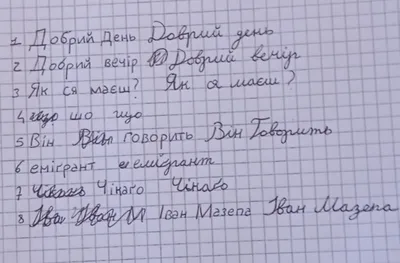 1 Добрий День Доврий день
2 Добрий вечір Доврий вечір
3 Як ся маєш? Як ся маєш?
4 що що
5 Він говорить Він Говорить
6 емігрант емігрант
7 Чінаго Чінаго
8 Іван Іван М Іван Мазепа Іван Мазепа